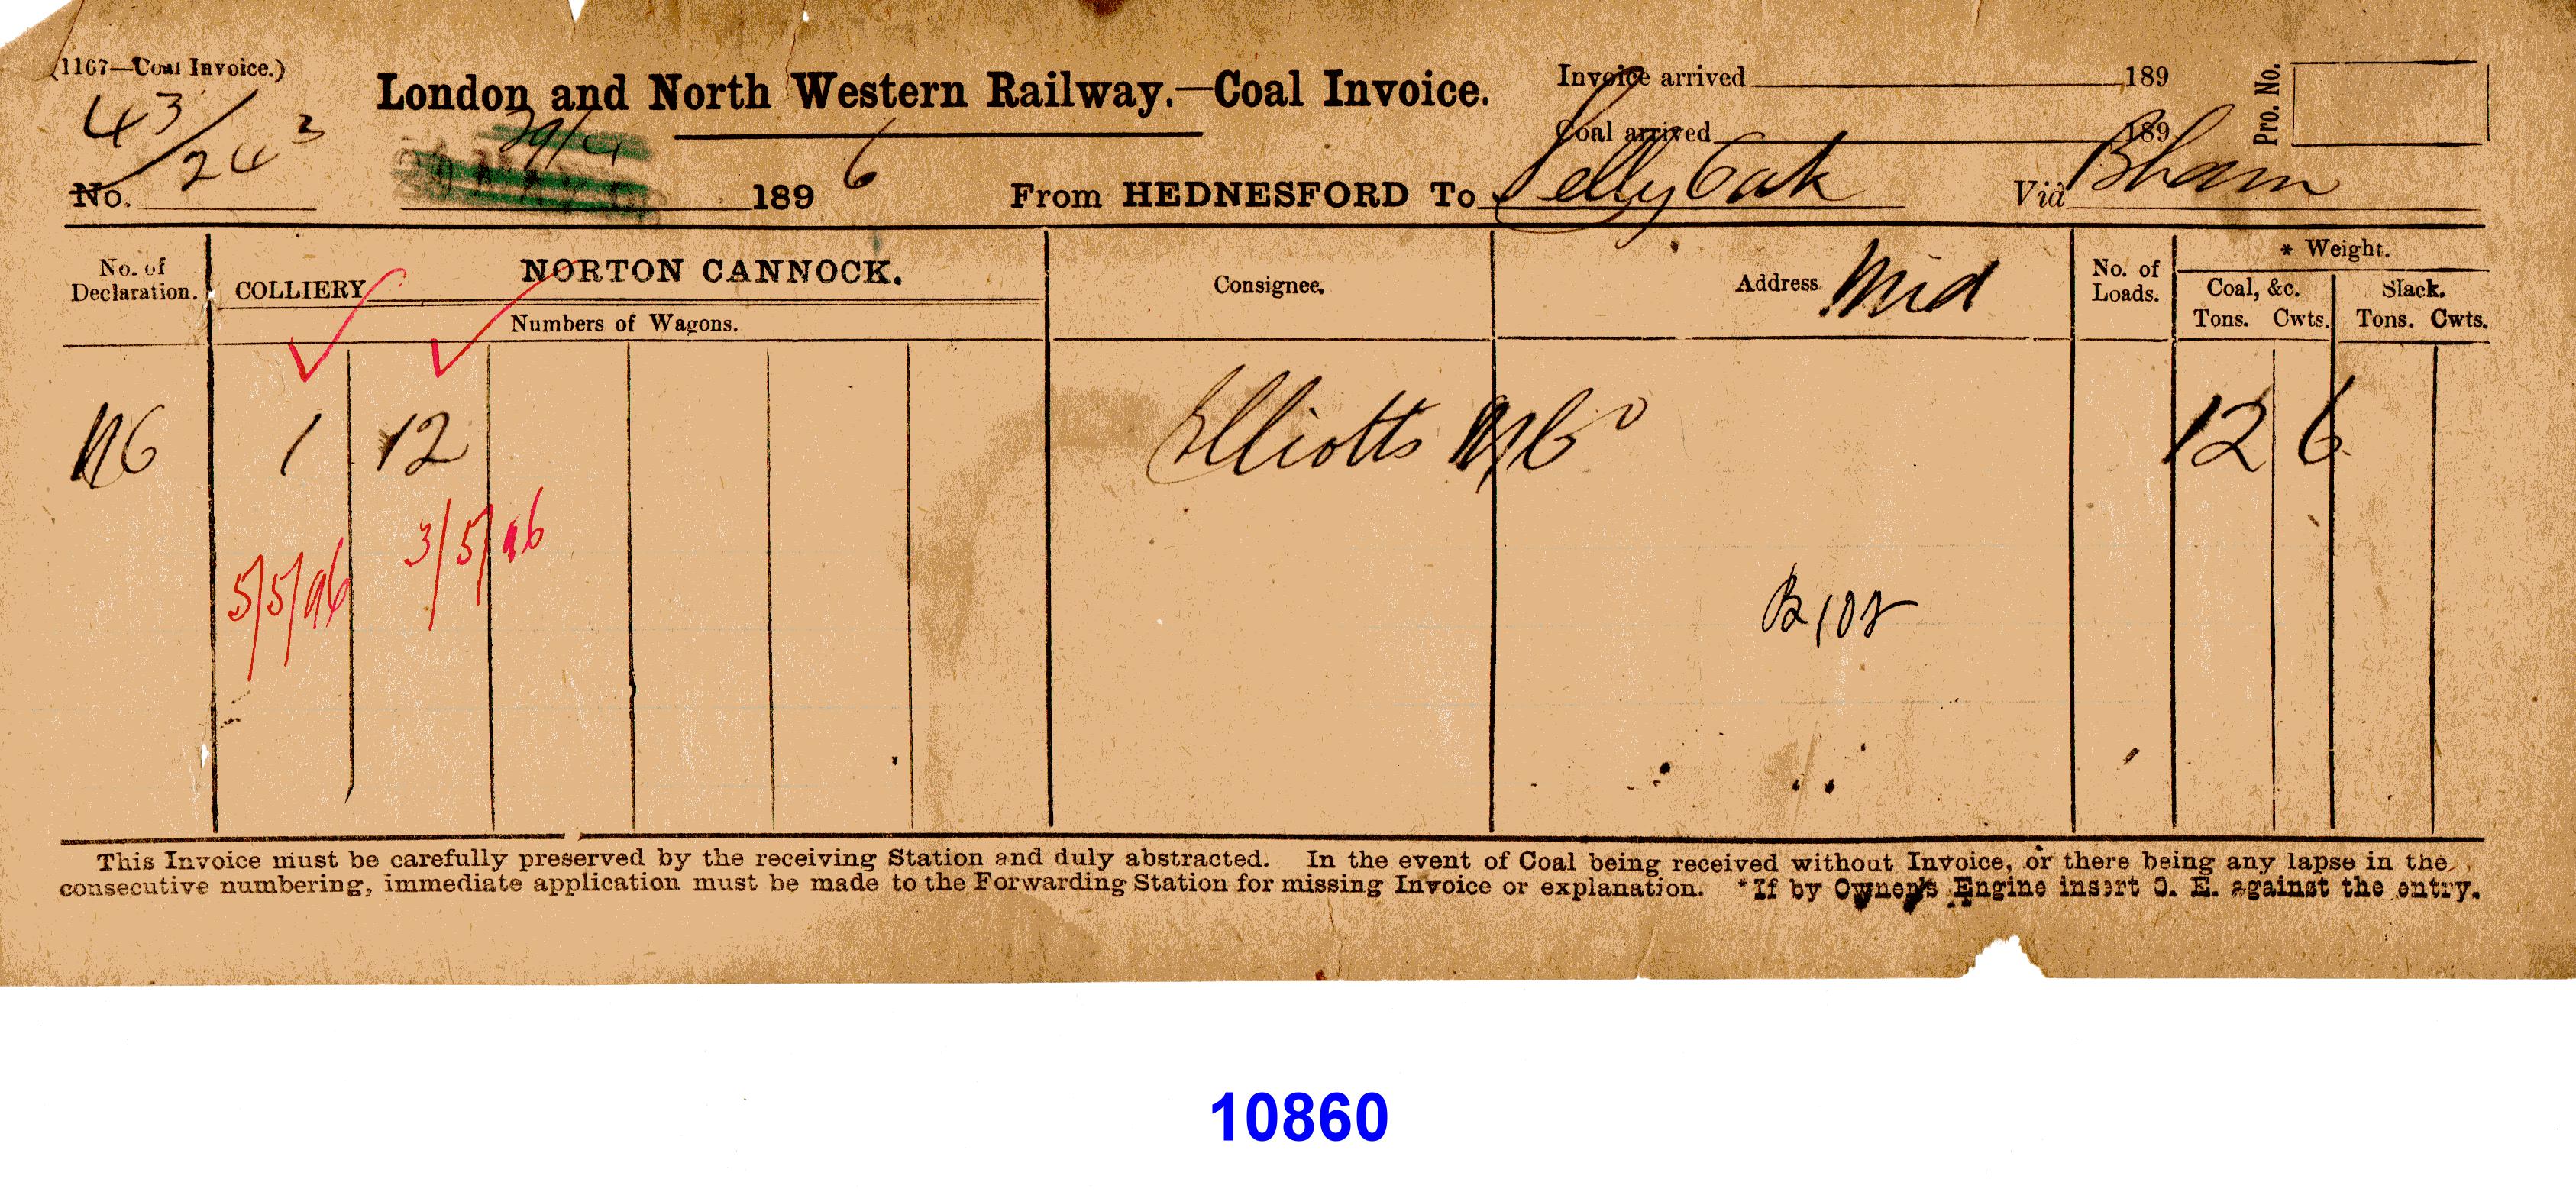 (1167—Coal Invoice.)
London and North Western Railway.—Coal Invoice.
Invoice arrived 189
Pro. No.
43/24
29/4
Coal arrived 189
No. 1896 From HEDNESFORD To Selly Oak Viâ Bham
No. of Declaration.
COLLIERY NORTON CANNOCK.
Numbers of Wagons.
Consignee.
Address Mid
No. of Loads.
* Weight.
Coal, &c. Slack.
Tons. Cwts. Tons. Cwts.
1 12 Elliotts M Co 12 6
3/5/96
5/5/96
This Invoice must be carefully preserved by the receiving Station and duly abstracted. In the event of Coal being received without Invoice, or there being any lapse in the
consecutive numbering, immediate application must be made to the Forwarding Station for missing Invoice or explanation. *If by Owner's Engine insert O. E. against the entry.
10860